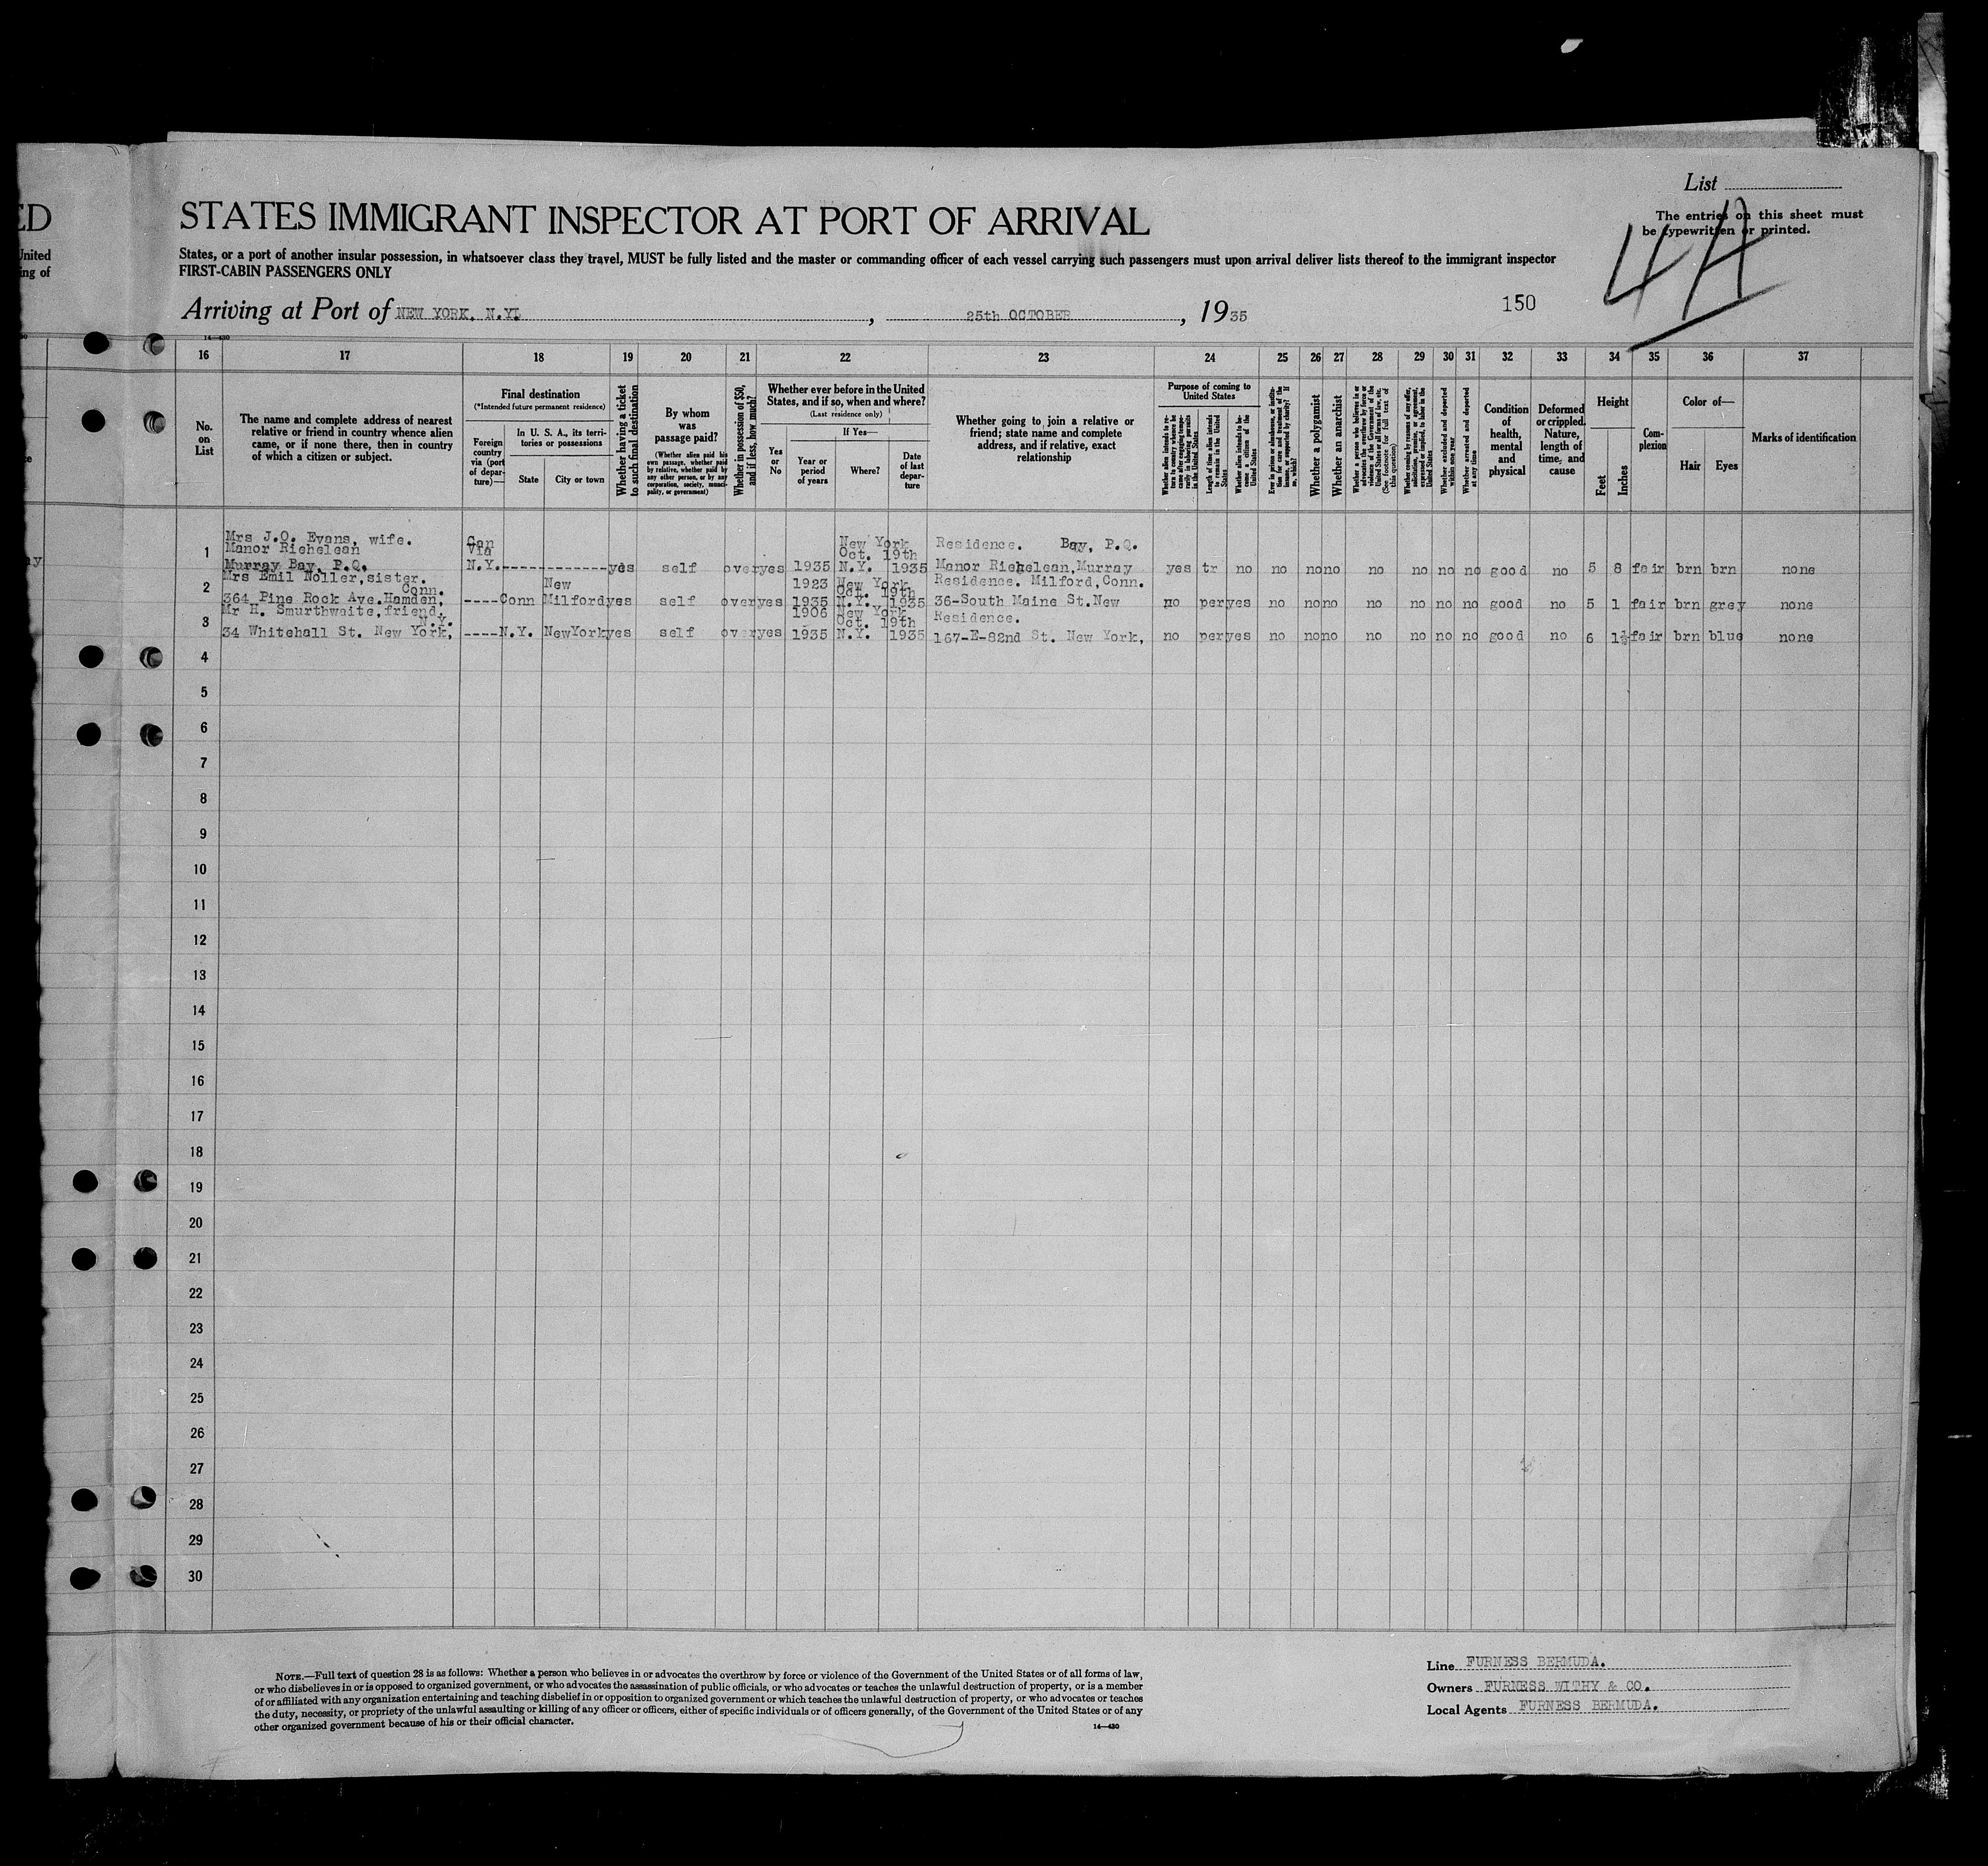 List
The entries on this sheet must
be typewritten or printed.
4A
ED
STATES IMMIGRANT INSPECTOR AT PORT OF ARRIVAL
United
States, or a port of another insular possession, in whatsoever class they travel, MUST be fully listed and the master or commanding officer of each vessel carrying such passengers must upon arrival deliver lists thereof to the immigrant inspector
ing of
FIRST-CABIN PASSENGERS ONLY
Arriving at Port of NEW YORK, N.Y. , 25th OCTOBER , 1935
150
14—430
16 17 18 19 20 21 22 23 24 25 26 27 28 29 30 31 32 33 34 35 36 37
No. on List
The name and complete address of nearest relative or friend in country whence alien came, or if none there, then in country of which a citizen or subject.
Final destination
(*Intended future permanent residence)
Foreign country via (port of departure)—
In U. S. A., its territories or possessions
State
City or town
Whether having a ticket to such final destination
By whom was passage paid?
(Whether alien paid his own passage, whether paid by relative, whether paid by any other person, or by any corporation, society, municipality, or government)
Whether in possession of $50, and if less, how much?
Whether ever before in the United States, and if so, when and where?
(Last residence only)
Yes or No
If Yes—
Year or period of years
Where?
Date of last departure
Whether going to join a relative or friend; state name and complete address, and if relative, exact relationship
Purpose of coming to United States
Whether alien intends to return to country whence he came after engaging temporarily in laboring pursuits in the United States
Length of time alien intends to remain in the United States
Whether alien intends to become a citizen of the United States
Ever in prison or almshouse, or institution for care and treatment of the insane, or supported by charity? If so, which?
Whether a polygamist
Whether an anarchist
Whether a person who believes in or advocates the overthrow by force or violence of the Government of the United States or all forms of law, etc. (See footnote for full text of this question)
Whether coming by reasons of any offer, solicitation, promise, or agreement, expressed or implied, to labor in the United States
Whether excluded and deported within one year
Whether arrested and deported at any time
Condition of health, mental and physical
Deformed or crippled. Nature, length of time, and cause
Height
Feet
Inches
Complexion
Color of—
Hair
Eyes
Marks of identification
Mrs J.O. Evans, wife. Can New York Residence. Bay, P.Q.
1 Manor Richelean Via Oct. 19th
Murray Bay, P.Q. N.Y.------------- yes self over yes 1935 N.Y. 1935 Manor Richelean, Murray yes tr no no no no no no no no good no 5 8 fair brn brn none
2 Mrs Emil Noller, sister. New 1923 New York Residence. Milford, Conn.
Conn. Oct. 19th
364 Pine Rock Ave. Hamden, ----Conn Milford yes self over yes 1935 N.Y. 1935 36-South Maine St. New no per yes no no no no no no no good no 5 1 fair brn grey none
Mr H. Smurthwaite, friend. 1906 New York Residence.
3 N.Y. Oct. 19th
34 Whitehall St. New York, ----N.Y. NewYork yes self over yes 1935 N.Y. 1935 167-E-82nd St. New York, no per yes no no no no no no no good no 6 1½ fair brn blue none
4
5
6
7
8
9
10
11
12
13
14
15
16
17
18
19
20
21
22
23
24
25
26
27
28
29
30
NOTE.—Full text of question 28 is as follows: Whether a person who believes in or advocates the overthrow by force or violence of the Government of the United States or of all forms of law,
or who disbelieves in or is opposed to organized government, or who advocates the assassination of public officials, or who advocates or teaches the unlawful destruction of property, or is a member
of or affiliated with any organization entertaining and teaching disbelief in or opposition to organized government or which teaches the unlawful destruction of property, or who advocates or teaches
the duty, necessity, or propriety of the unlawful assaulting or killing of any officer or officers, either of specific individuals or of officers generally, of the Government of the United States or of any
other organized government because of his or their official character.
14—430
Line FURNESS BERMUDA.
Owners FURNESS WITHY & CO.
Local Agents FURNESS BERMUDA.